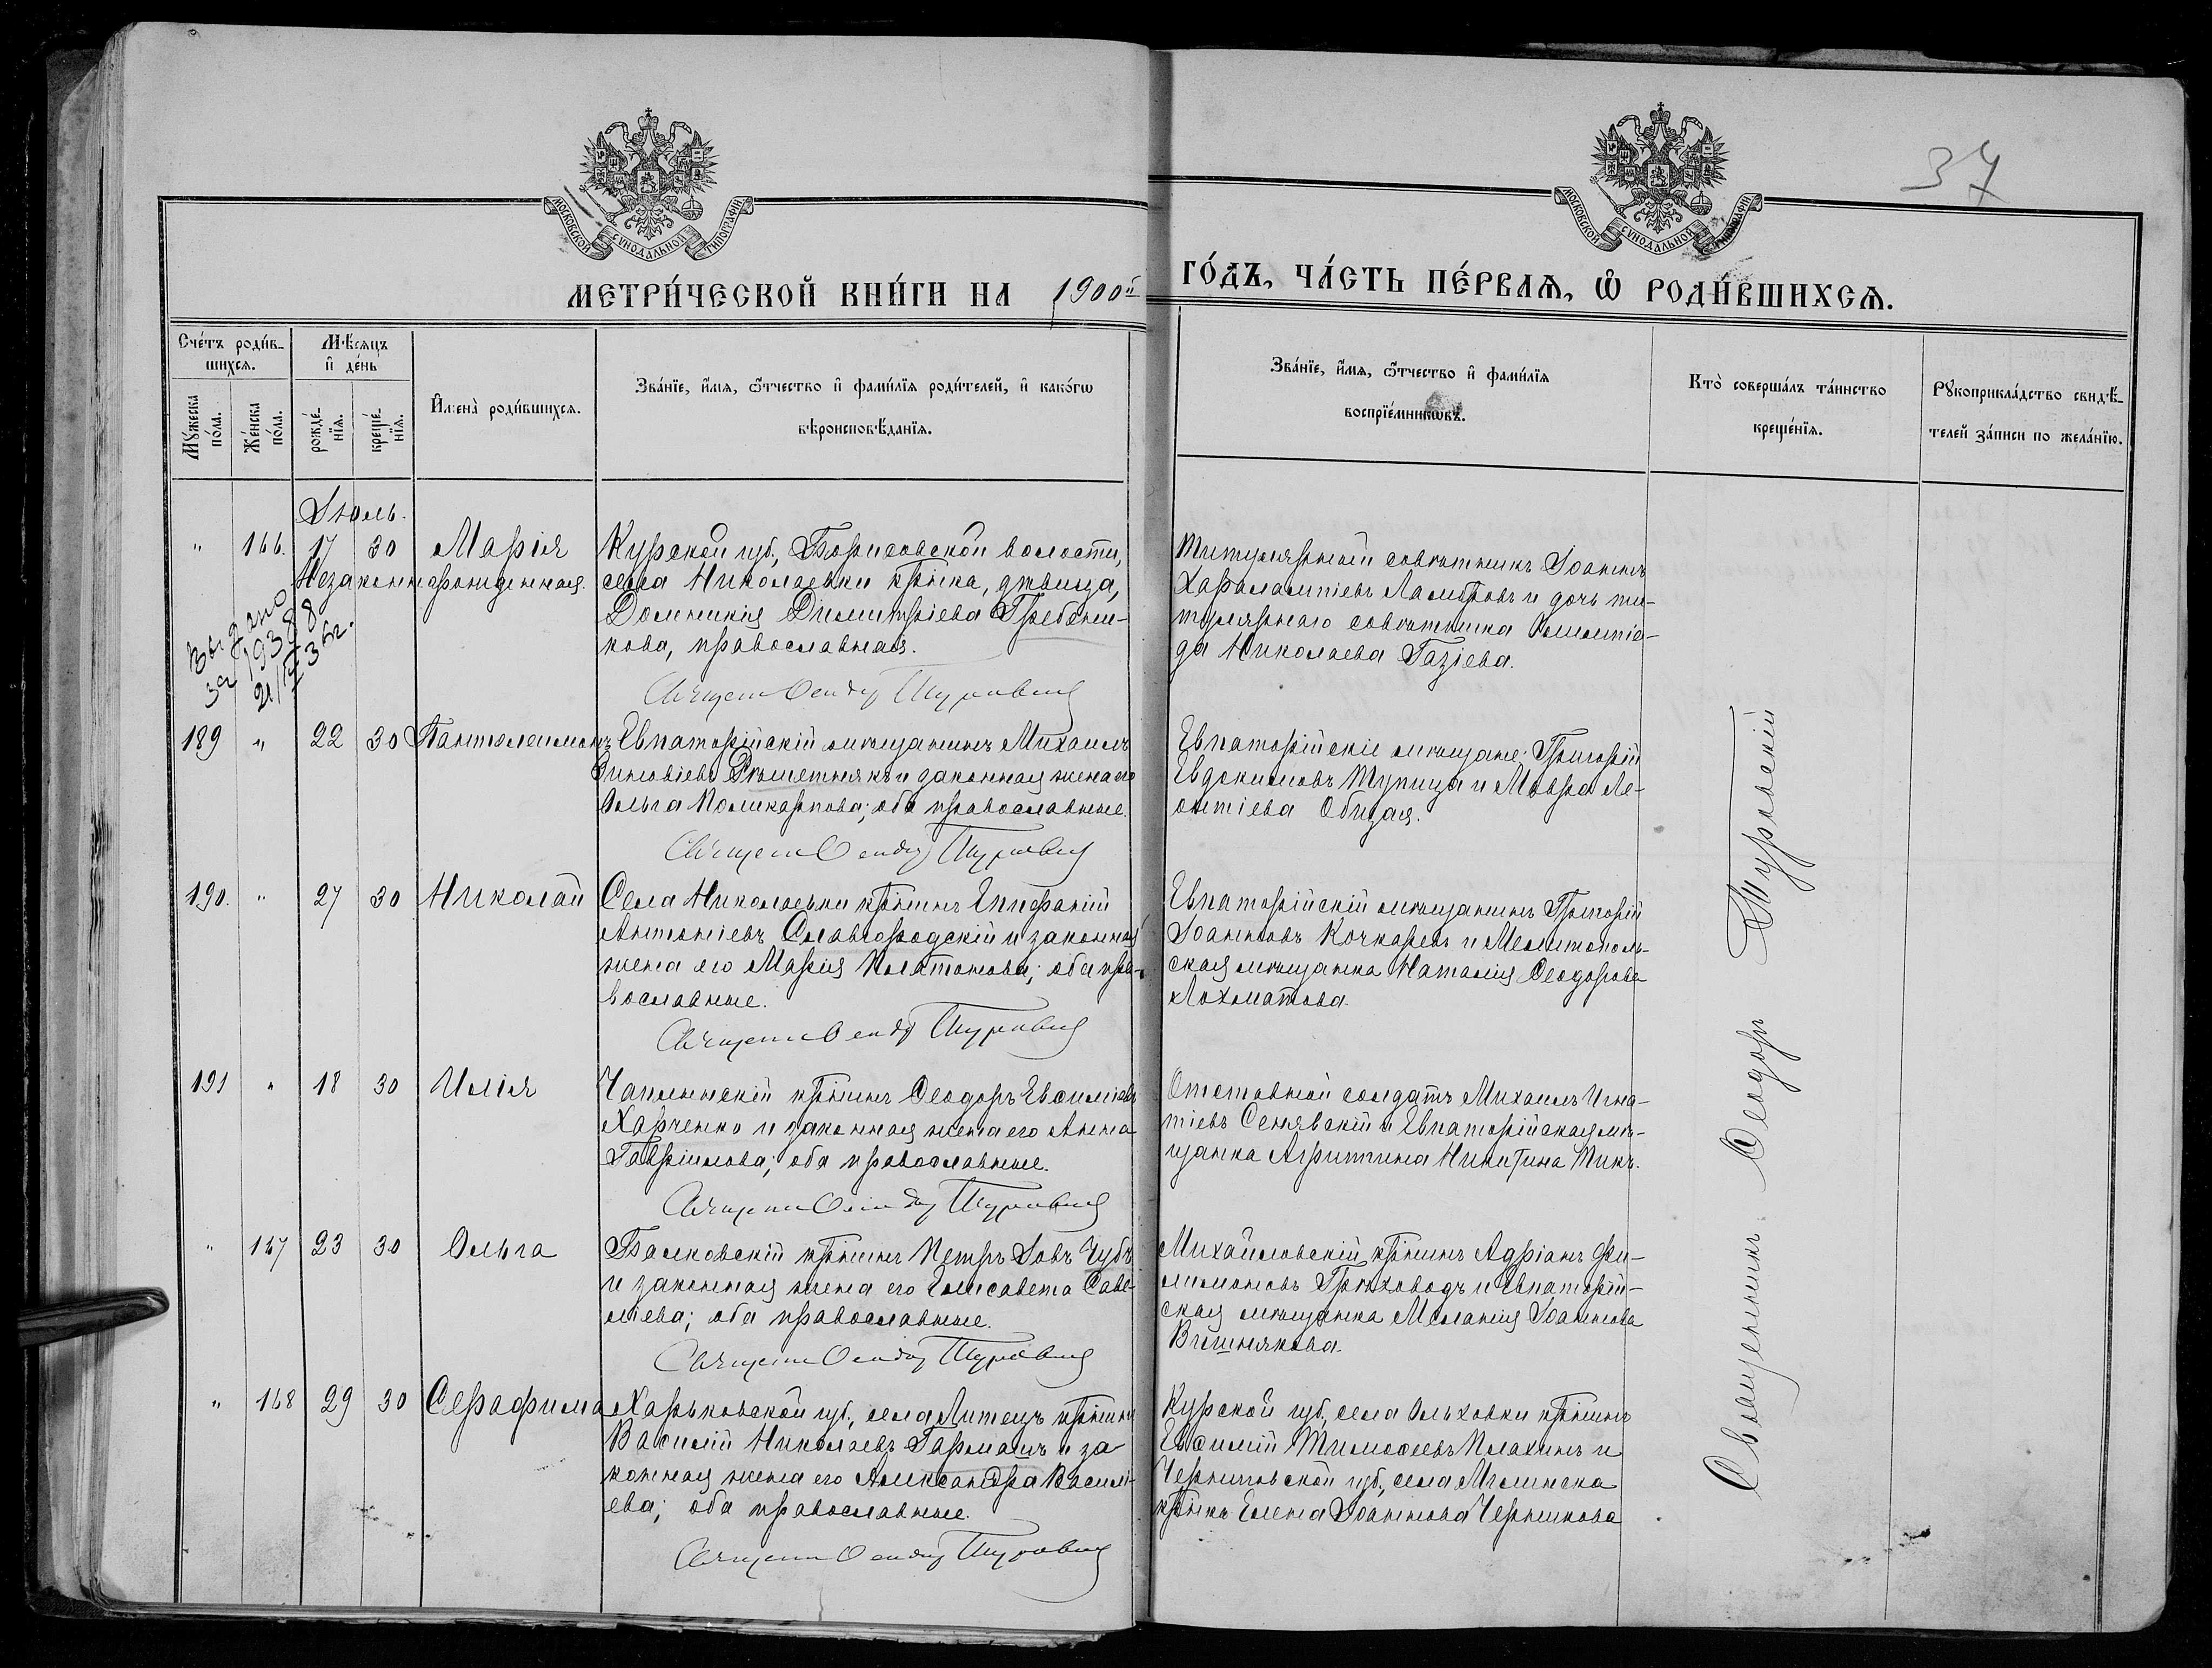 37
МОСКОВСКОЙ СѴНОДАЛЬНОЙ ТИПОГРАФІИ
МОСКОВСКОЙ СѴНОДАЛЬНОЙ ТИПОГРАФІИ
МЕТРИ́ЧЕСКОЙ КНИ́ГИ НА 1900й ГО́ДЪ, ЧА́СТЬ ПЕ́РВАѦ, Ѡ РОДИ́ВШИХСѦ.
Сче́тъ роди́в-
шихсѧ.
Мꙋ́жеска
по́ла.
Же́нска
по́ла.
Мѣ́сѧцъ
и҆ де́нь
рожде́-
нїѧ.
креще́-
нїѧ.
И҆мена̀ роди́вшихсѧ.
Зва́нїе, и҆́мѧ, ѻ҆́тчество и҆ фами́лїѧ роди́телей, и҆ како́гѡ
вѣроисповѣ́данїѧ.
Зва́нїе, и҆́мѧ, ѻ҆́тчество и҆ фами́лїѧ
воспрїе́мникѡвъ.
Кто̀ соверша́лъ та́инство
креще́нїѧ.
Рꙋкоприкла́дство свидѣ́-
телей за́писи по жела́нїю.
Іюль.
" 166. 17 30 Марія
Незаконнорожденная.
Выдано
за 19388
21/IV 36г.
Курской губ., Борисовской волости,
села Николаевки крѣнка, дѣвица,
Домникія Димитріева Гребени-
кова, православная.
Священ Ѳеодор Туровский
Титулярный совѣтникъ Іоаннъ
Харалампіевъ Ламбровъ и дочь ти-
тулярнаго совѣтника Олимпіа-
да Николаева Газіева.
189 " 22 30 Пантелеимонъ
Евпаторійскій мѣщанинъ Михаилъ
Зиновіевъ Рѣшетнякъ и законная жена его
Ольга Поликарпова; оба православные.
Священ Ѳеодор Туровский
Евпаторійскіе мѣщане: Григорій
Евдокимовъ Тупица и Мавра Ле-
онтіева Обицая.
190. " 27 30 Николай
Села Николаевки крѣнинъ Епифаній
Антоніевъ Славгородскій и законная
жена его Марія Платонова; оба пра-
вославные.
Священ Ѳеодор Туровский
Евпаторійскій мѣщанинъ Григорій
Іоанновъ Кочкаревъ и Мелитополь-
ская мѣщанка Наталія Ѳеодорова
Лохматова.
191 " 18 30 Илія
Чаплинскій крѣнинъ Ѳеодоръ Евѳиміевъ
Харченко и законная жена его Анна
Гавріилова; оба православные.
Священ Ѳеодор Туровский
Отставной солдатъ Михаилъ Игна-
тіевъ Сенявскій и Евпаторійская мѣ-
щанка Агриппина Никитина Тикъ.
" 167 23 30 Ольга
Балковскій крѣнинъ Петръ Іовъ Чубъ
и законная жена его Елисавета Саве-
ліева; оба православные.
Священ Ѳеодор Туровский
Михайловскій крѣнинъ Адріанъ Фи-
лимоновъ Грѣховодъ и Евпаторій-
ская мѣщанка Меланія Іоаннова
Вишнякова.
" 168 29 30 Серафима
Харьковской губ., села Липецъ крѣнинъ
Василій Николаевъ Гармашъ и за-
конная жена его Александра Василі-
ева; оба православные.
Священ Ѳеодор Туровский
Курской губ., села Ольховки крѣнинъ
Евѳимій Тимоѳеевъ Плахинъ и
Черниговской губ., села Мглинска
крѣнка Елена Іоаннова Черникова
Священникъ Ѳеодоръ Туровскій